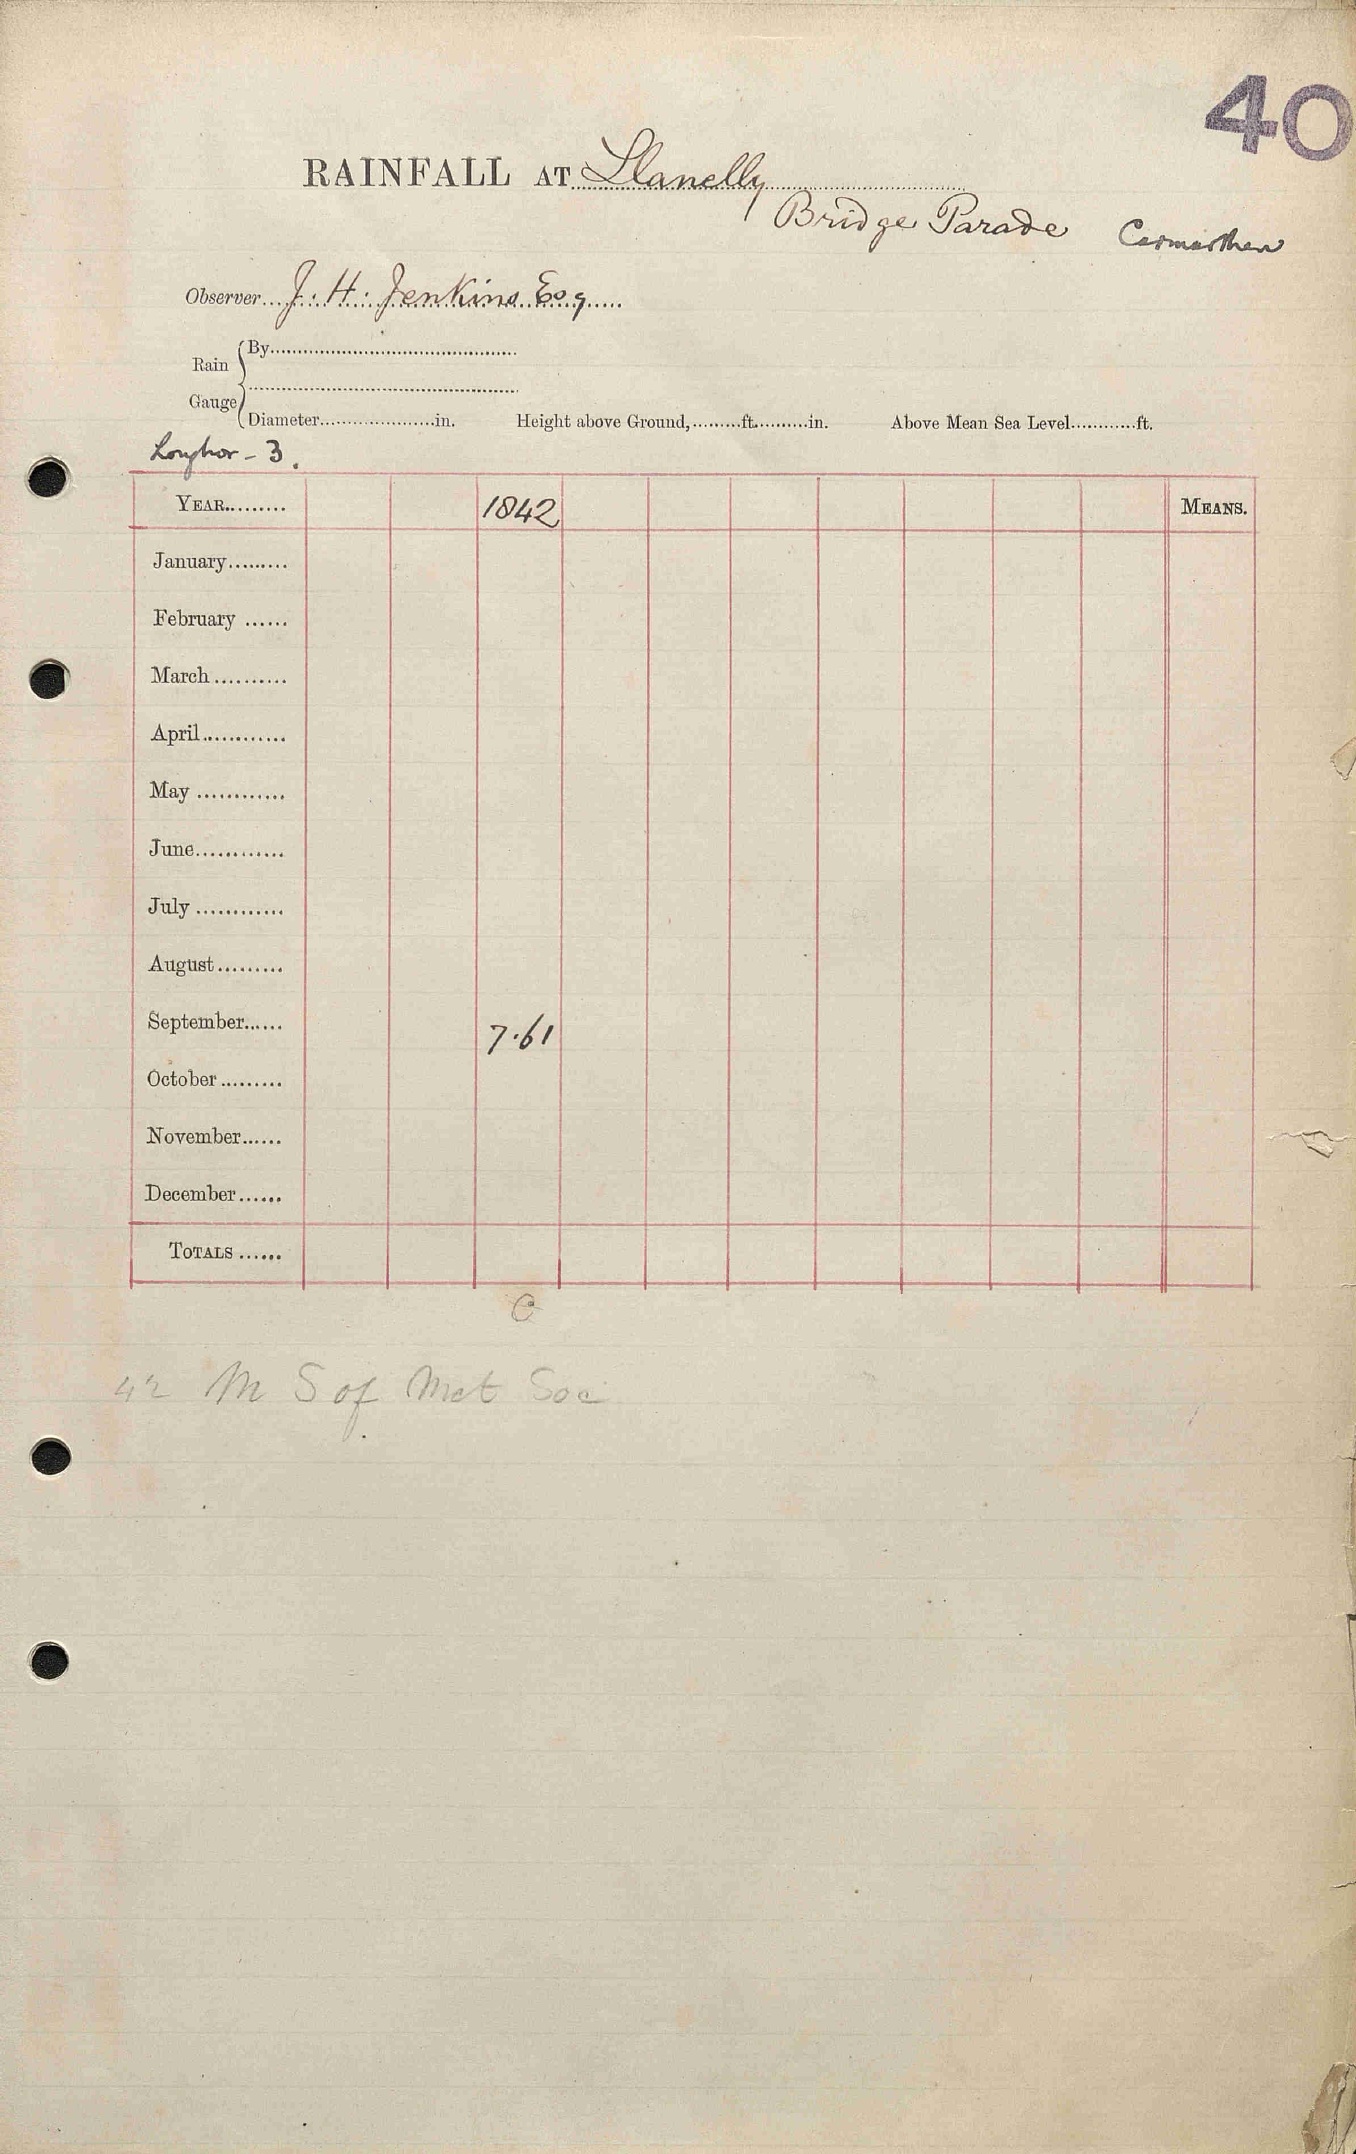 40
RAINFALL AT Llanelly
Bridge Parade Carmarthen
Observer....J. H. Jenkins Esq.....
Rain
Gauge
By..............................
..............................
Diameter....................in. Height above Ground,.........ft..........in. Above Mean Sea Level............ft.
Loughor - 3.
YEAR......... 1842 MEANS.
January.........
February ......
March..........
April............
May ............
June............
July ............
August.........
September...... 7.61
October.........
November......
December......
TOTALS ......
C
42 M S of Met Soc